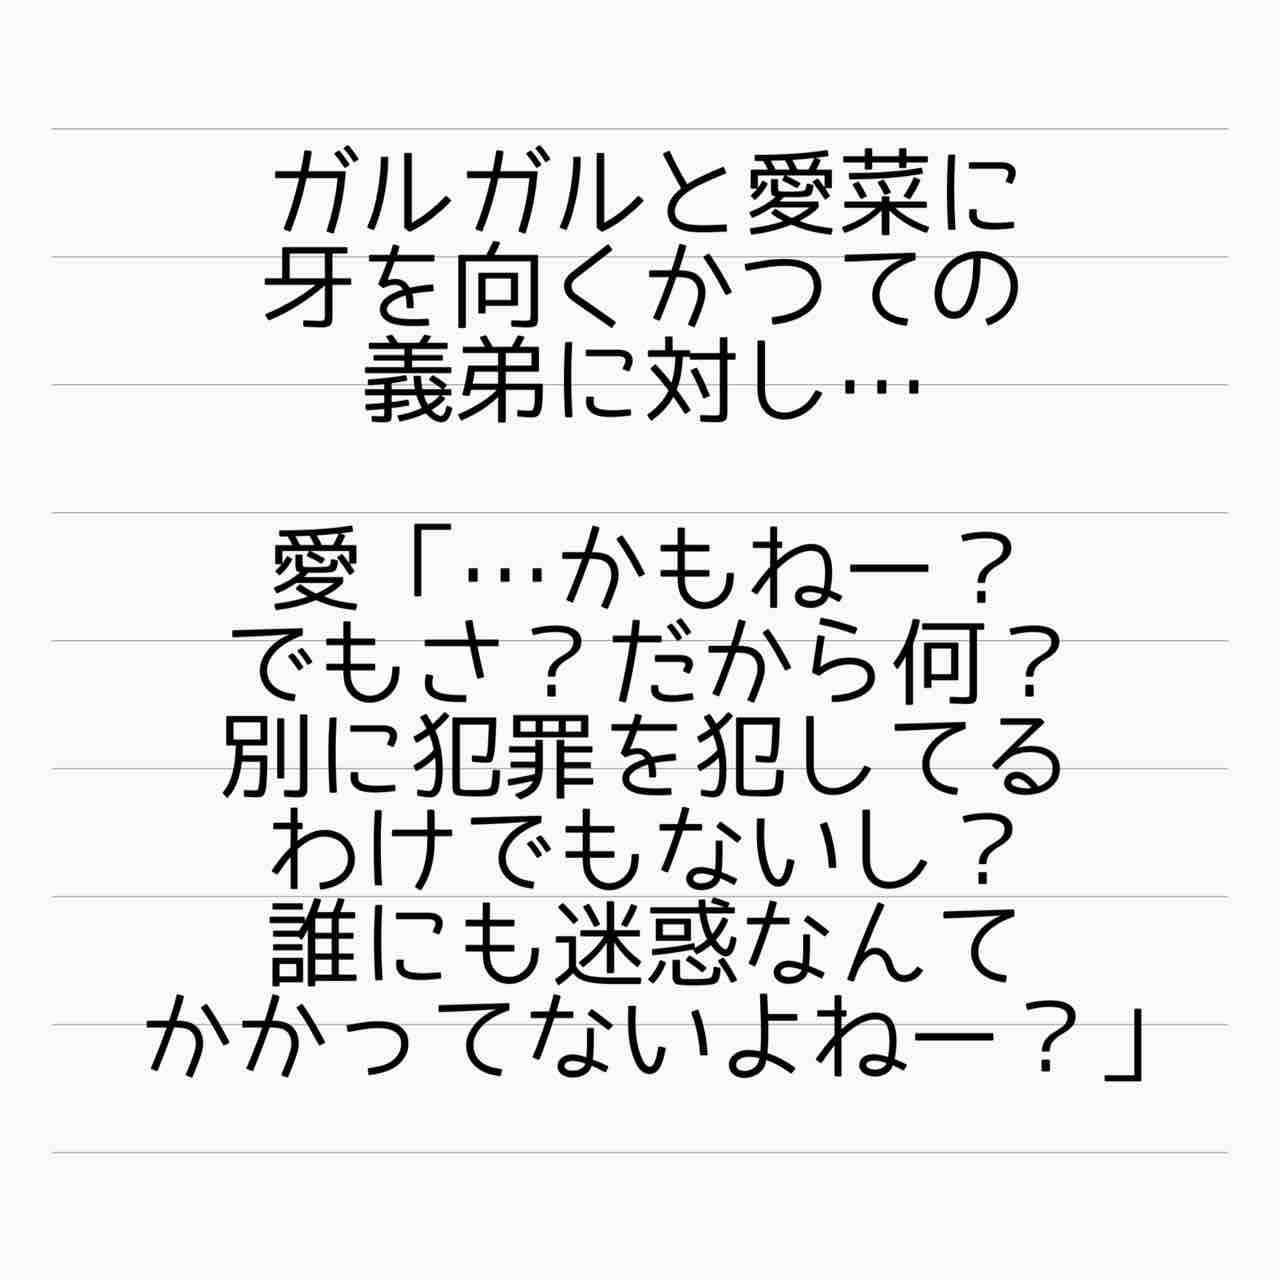 ガルガルと愛菜に
牙を向くかつての
義弟に対し…
愛「…かもねー？
でもさ？だから何？
別に犯罪を犯してる
わけでもないし？
誰にも迷惑なんて
かかってないよねー？」